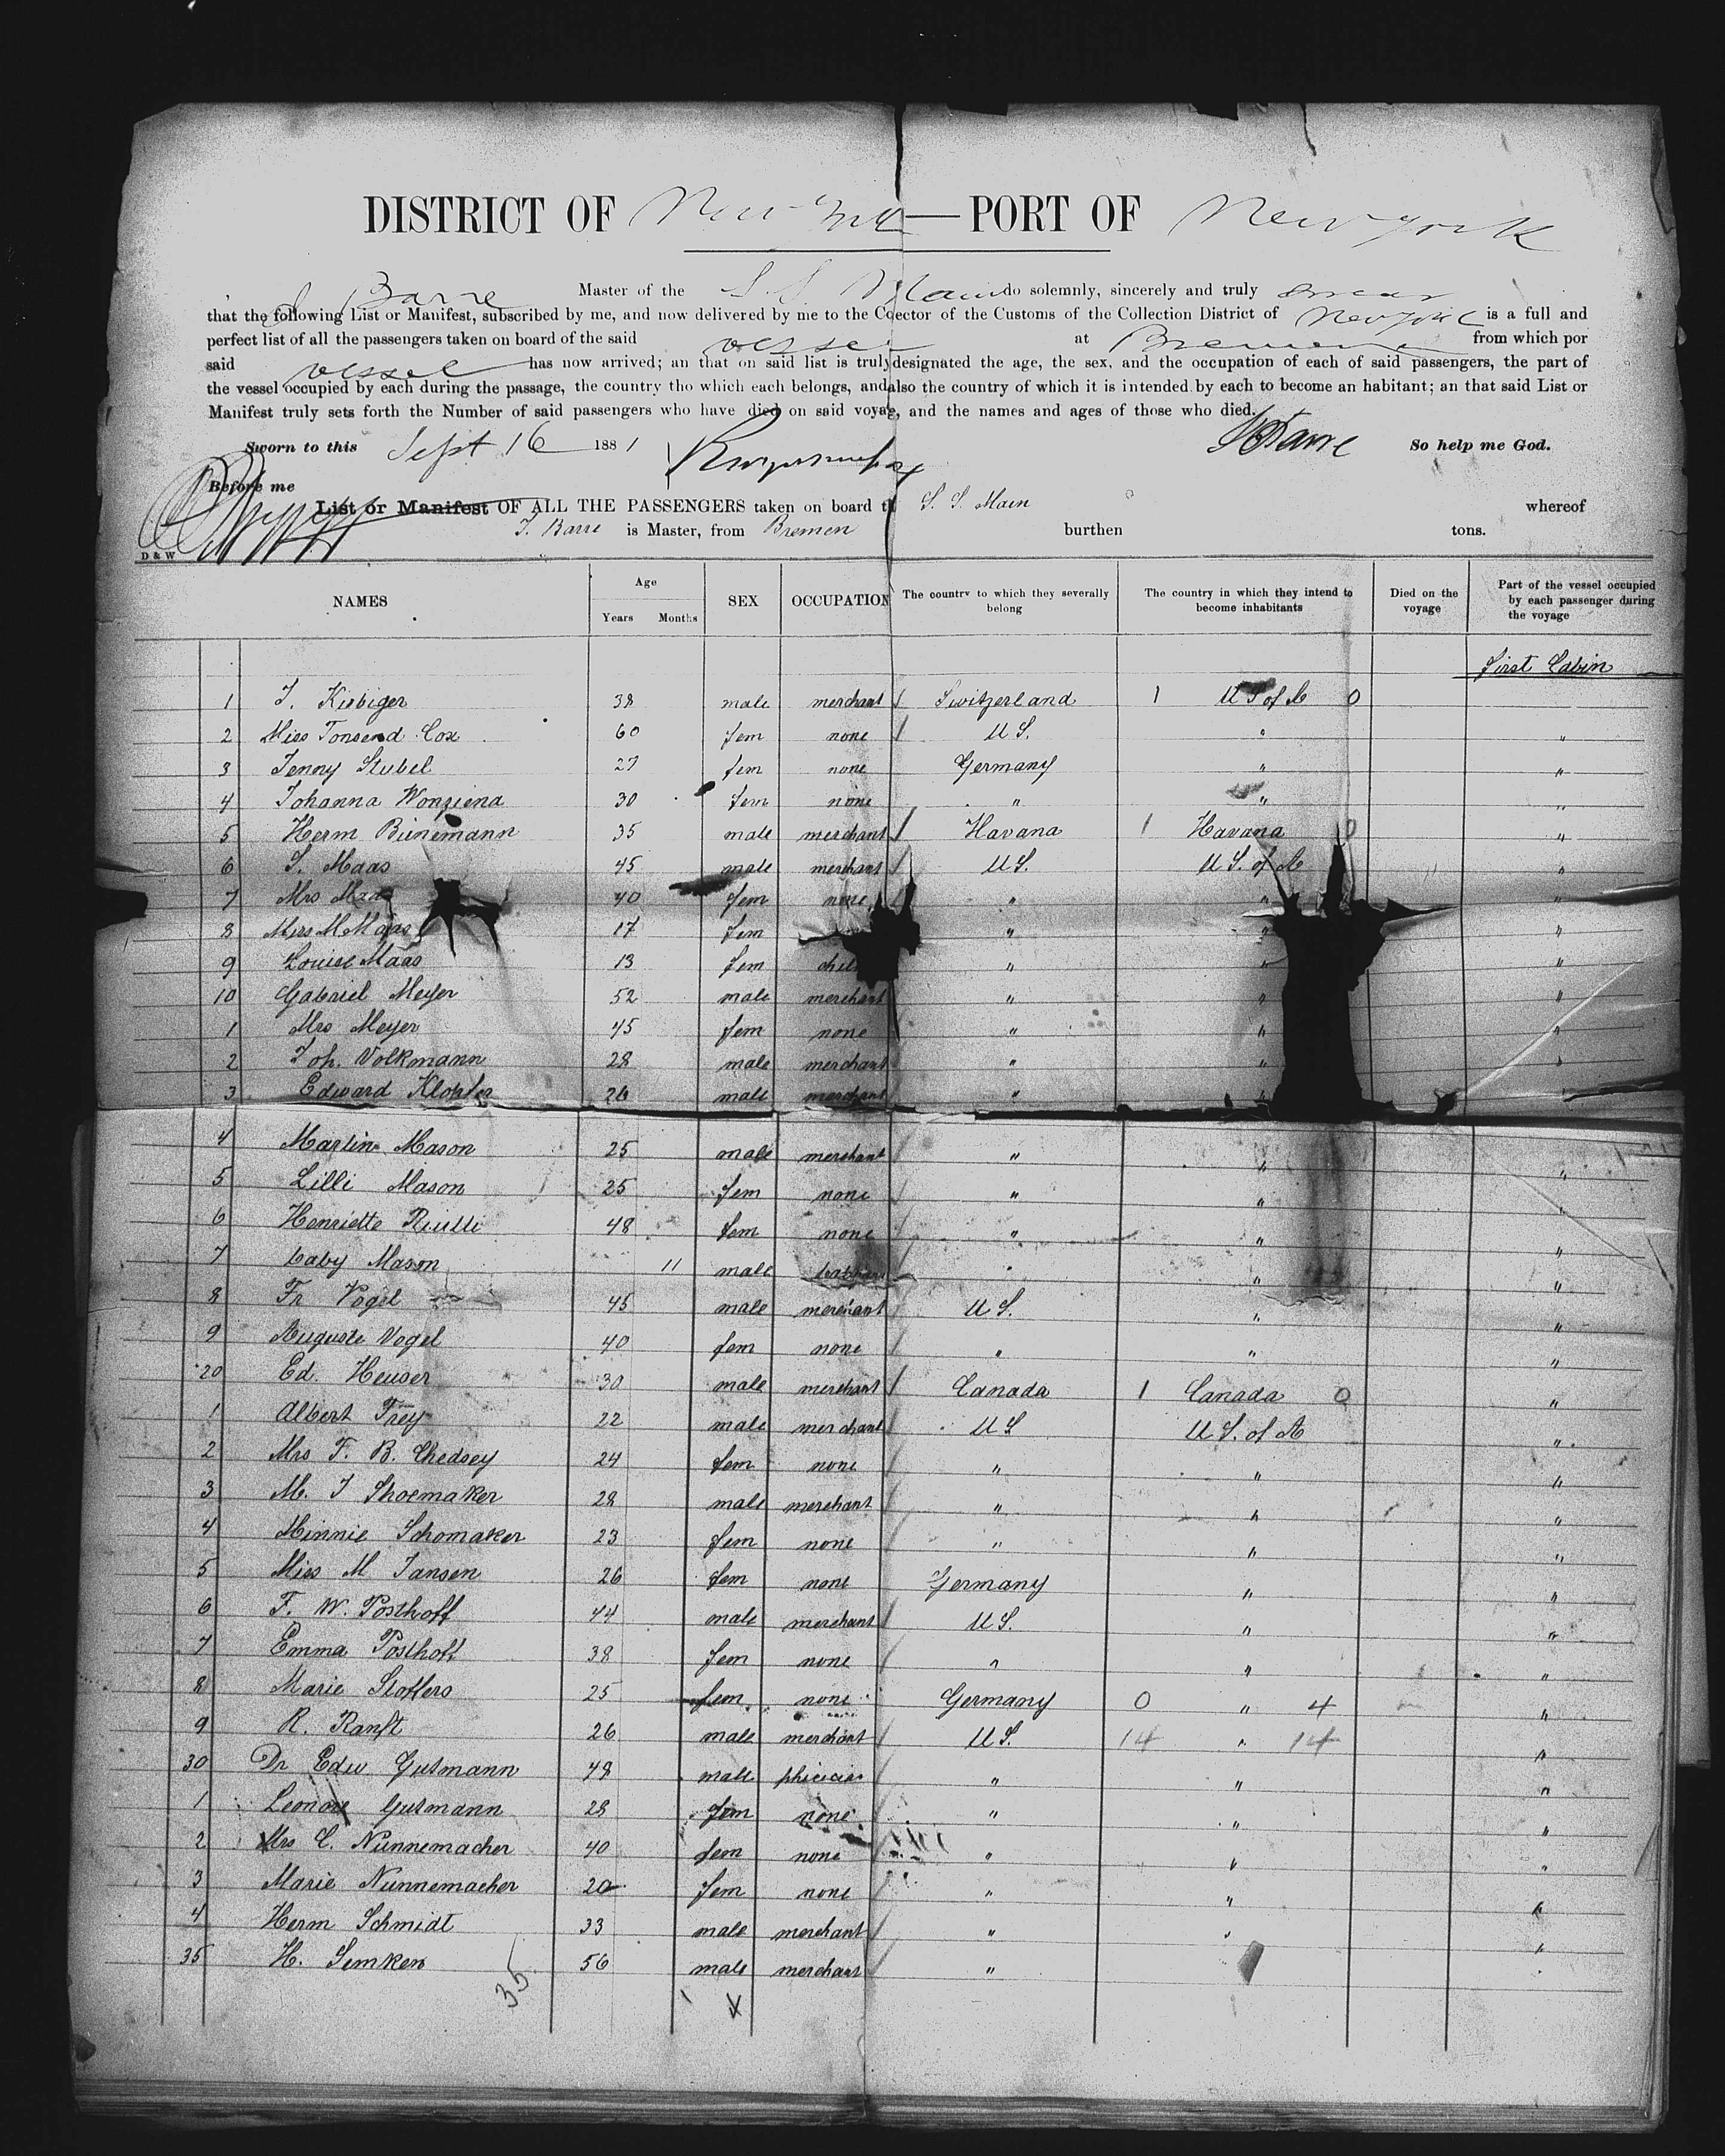 DISTRICT OF New York — PORT OF New York
J. Barre Master of the S. S. Main do solemnly, sincerely and truly swear
that the following List or Manifest, subscribed by me, and now delivered by me to the Coector of the Customs of the Collection District of New York is a full and
perfect list of all the passengers taken on board of the said vessel at Bremen from which por
said vessel has now arrived; an that on said list is truly designated the age, the sex, and the occupation of each of said passengers, the part of
the vessel occupied by each during the passage, the country tho which each belongs, and also the country of which it is intended by each to become an habitant; an that said List or
Manifest truly sets forth the Number of said passengers who have died on said voyag, and the names and ages of those who died.
Sworn to this Sept 16 1881 JBarre So help me God.
Before me
List or Manifest OF ALL THE PASSENGERS taken on board th S. S. Main whereof
J. Barre is Master, from Bremen burthen tons.
D & W
NAMES Age Years Months SEX OCCUPATION The country to which they severally belong The country in which they intend to become inhabitants Died on the voyage Part of the vessel occupied by each passenger during the voyage
First Cabin
1 J. Kubiger 38 male merchant / Switzerland 1 U S of A 0
2 Miss Tonsend Cox 60 fem none / U S. " "
3 Jenny Stubel 27 fem none Germany " "
4 Johanna Wonziena 30 fem none " " "
5 Herm Bünemann 35 male merchant / Havana 1 Havana 0 "
6 S. Maas 45 male merchant / U S. U S. of A "
7 Mrs Maas 40 fem none " " "
8 Miss M Maas 17 fem " " "
9 Louise Maas 13 fem " " "
10 Gabriel Meyer 52 male merchant " " "
1 Mrs Meyer 45 fem none " " "
2 Joh. Volkmann 28 male merchant " " "
3 Edward Klopfer 26 male merchant " " "
4 Martin Mason 25 male merchant / " " "
5 Lilli Mason 25 fem none / " " "
6 Henriette 48 fem none / " " "
7 baby Mason 11 male " " "
8 Fr Vogel 45 male merchant / U S. " "
9 Auguste Vogel 40 fem none / " " "
20 Ed. Heuser 30 male merchant / Canada 1 Canada 0 "
1 Albert Frey 22 male merchant U S U S. of A "
2 Mrs F. B. Chedsey 24 fem none / " " "
3 M. J Shoemaker 28 male merchant / " " "
4 Minnie Schomaker 23 fem none / " " "
5 Miss M Jansen 26 fem none Germany " "
6 F. W. Posthoff 44 male merchant / U S. " "
7 Emma Posthoff 38 fem none / " " "
8 Marie Stoffers 25 fem none Germany 0 " 4 "
9 R. Ranft 26 male merchant / U S. 14 " 14 "
30 Dr Edw Gutmann 48 male phicician / " " "
1 Leonore Gutmann 28 fem none " " "
2 Mrs C. Nunnemacher 40 fem none " " "
3 Marie Nunnemacher 20 fem none / " " "
4 Herm Schmidt 33 male merchant / " " "
35 H. Semken 56 male merchant / "
35